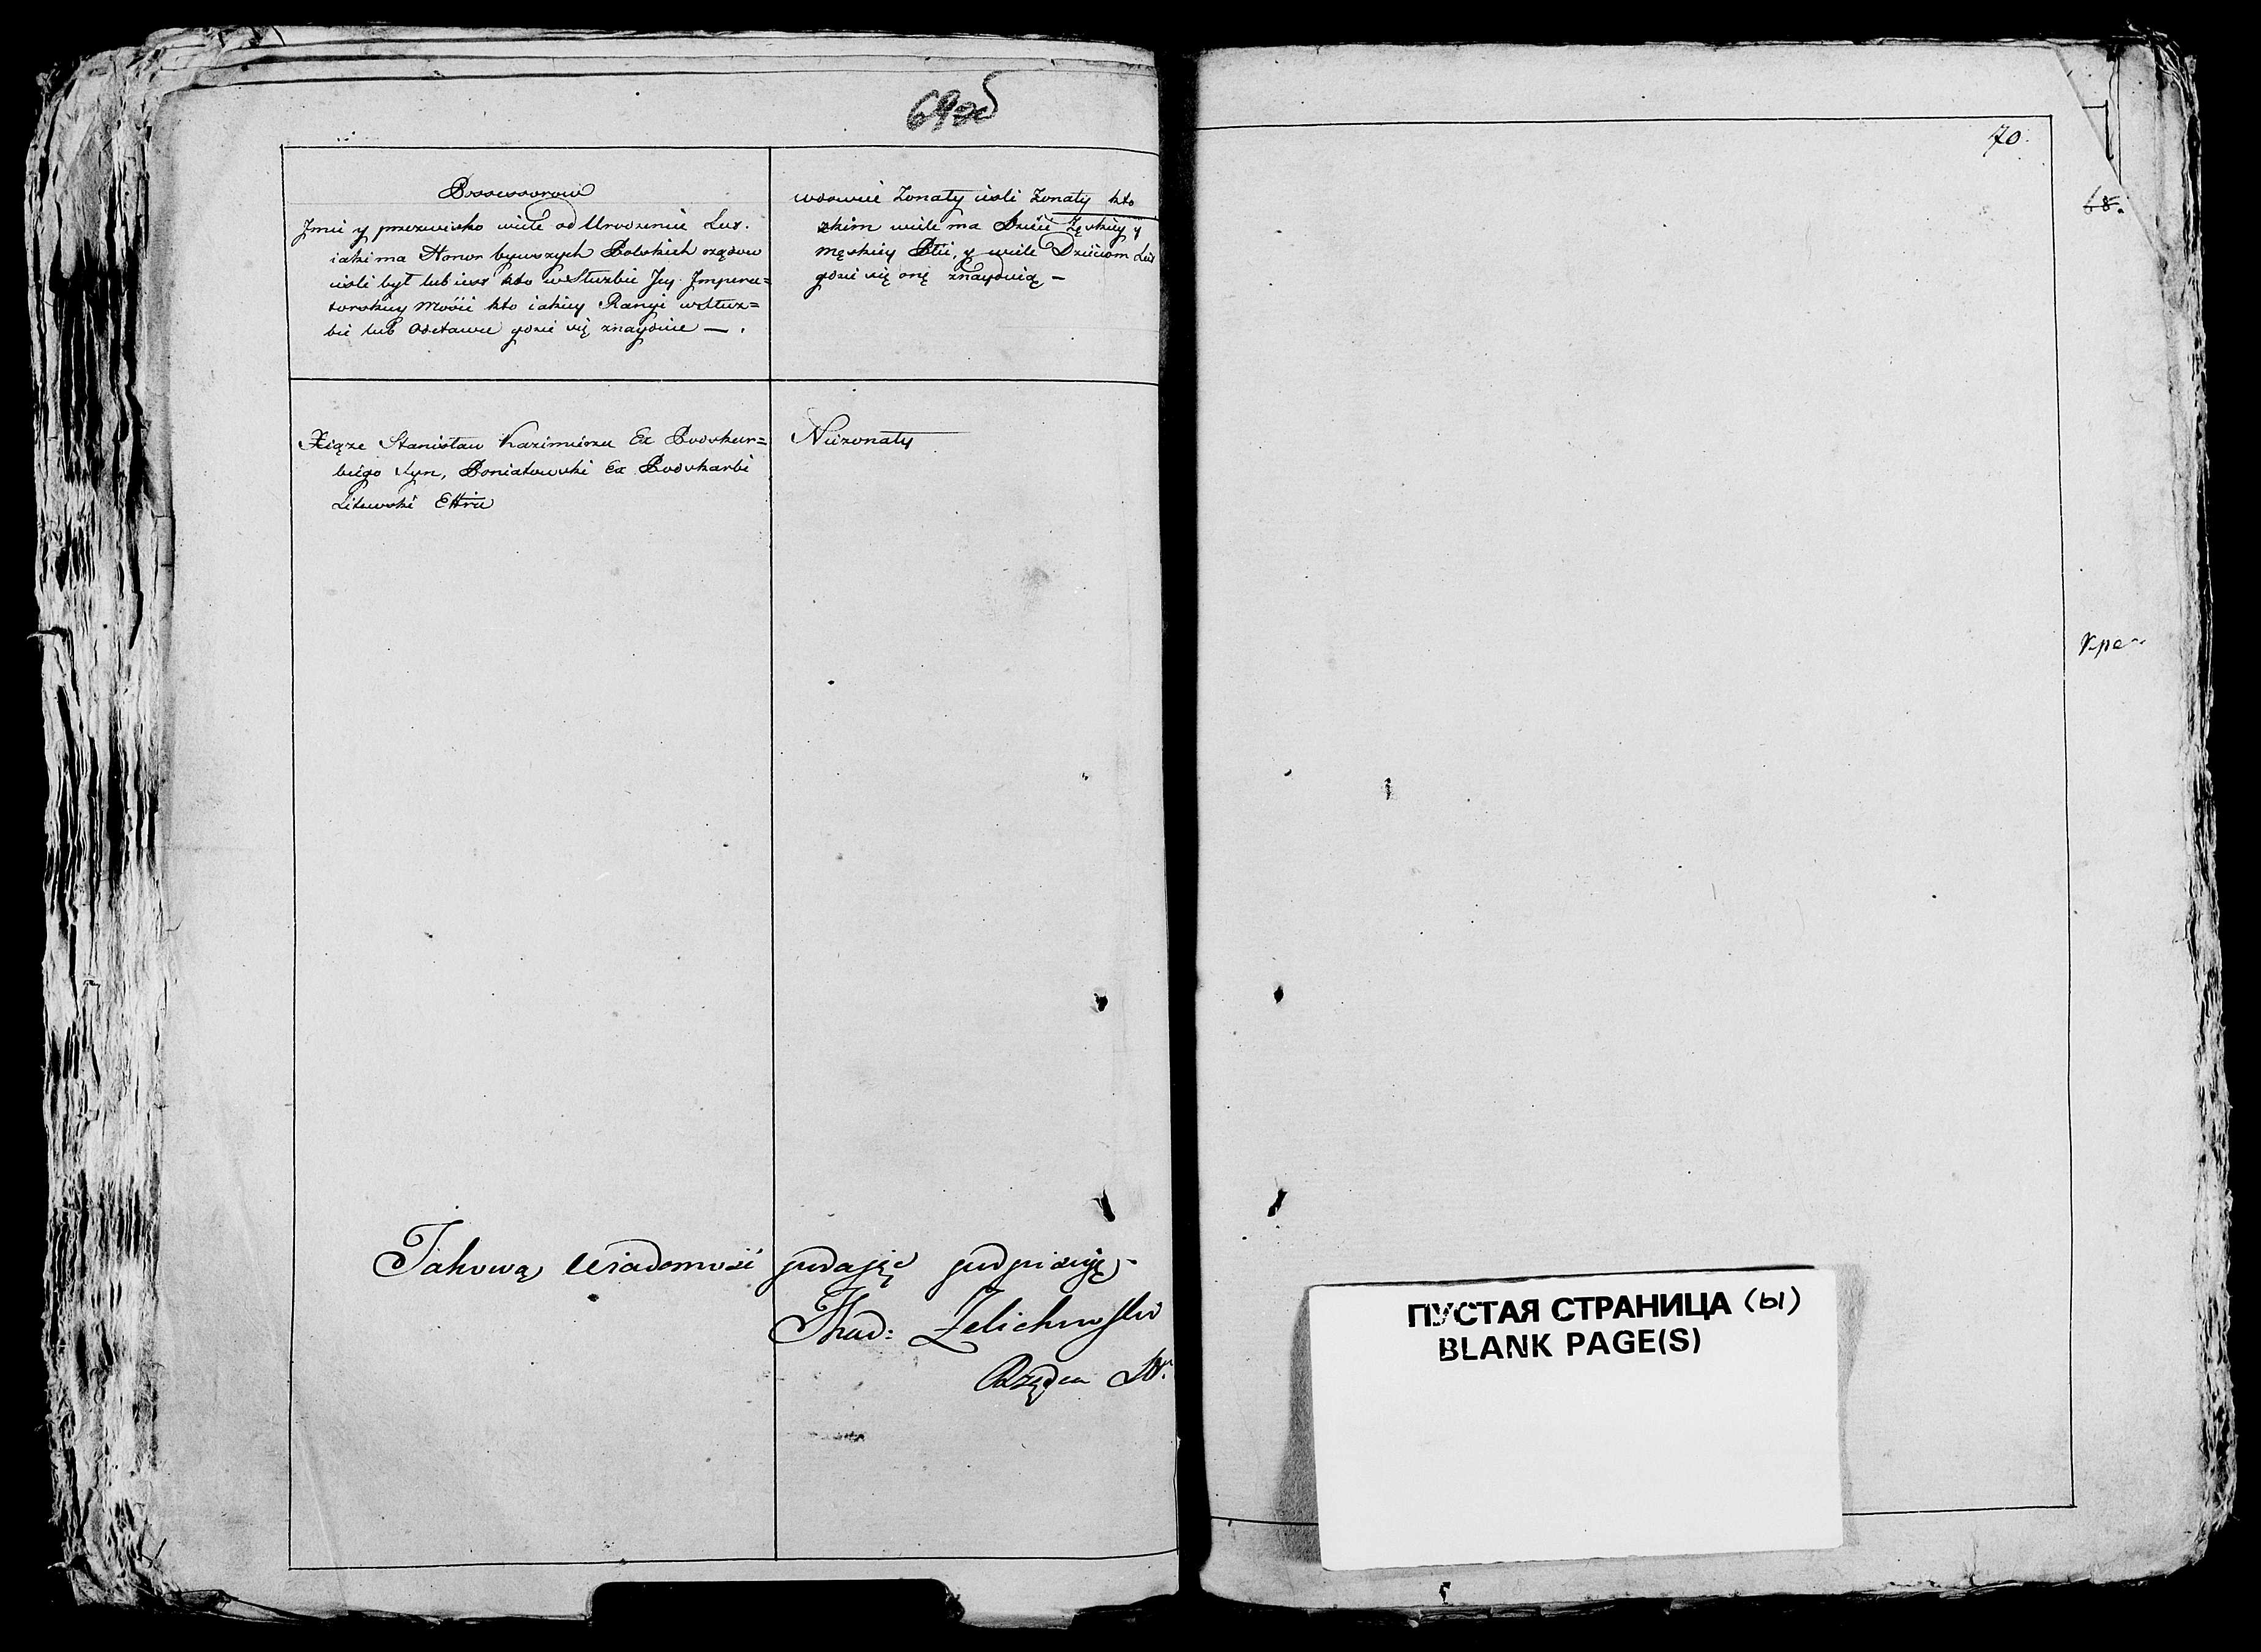 69об
Possessorow
Jmie y przezwisko wiele od Urodzenia Lat.
iaki ma Honor bywszych Polskich rządow
iesli był lub iest kto w Służbie Jey Impera=
torskiey Mości kto iakiey Rangi w Służ=
bie lub Odstawce gdzie się znayduie — .
wdowiec Żonaty iesli Żonaty kto
zkim wiele ma Dzieci Żęskiey y
męskiey Płci, y wiele Dzieciom Lat
gdzie się onę znayduią —
Xiąże Stanisław Kazimierza Ex Podskar=
biego syn, Poniatowski Ex Podskarbi
Litewski Ettra
Nieżonaty
Takową wiadomość podając podpisuję
Thad: Zelichowski
Rządca
70.
68.
ПУСТАЯ СТРАНИЦА (Ы)
BLANK PAGE(S)